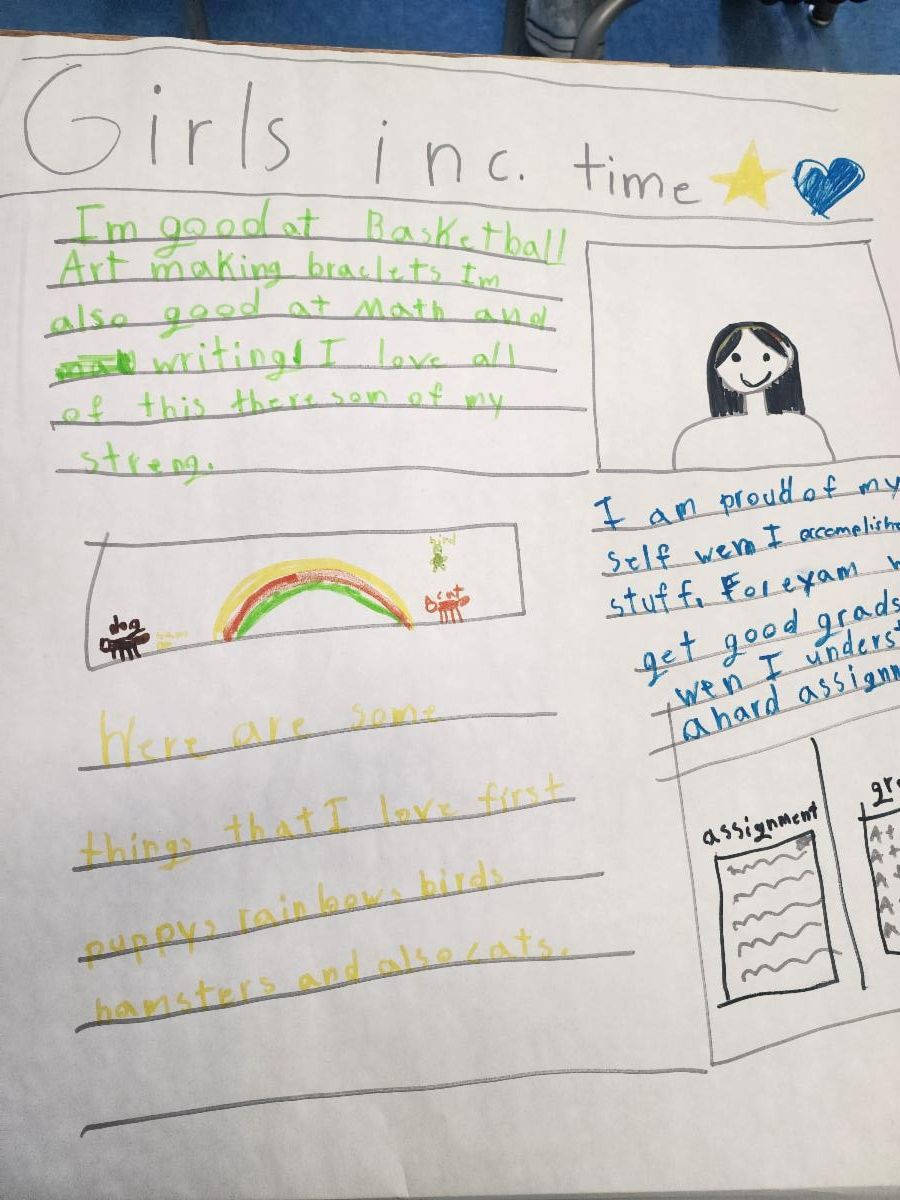 Girls inc. time
I'm good at Basketball
Art making braclets Im
also good at Math and
writing! I love all
of this there som of my
streng.
I am proud of my
self wen I accomplishe
stuff. For exam
get good grads
wen I underst
a hard assignm
dog
bird
cat
Here are some
things that I love first
puppys rainbows birds
hamsters and also cats.
assignment
gr
A+
A+
A+
A+
A+